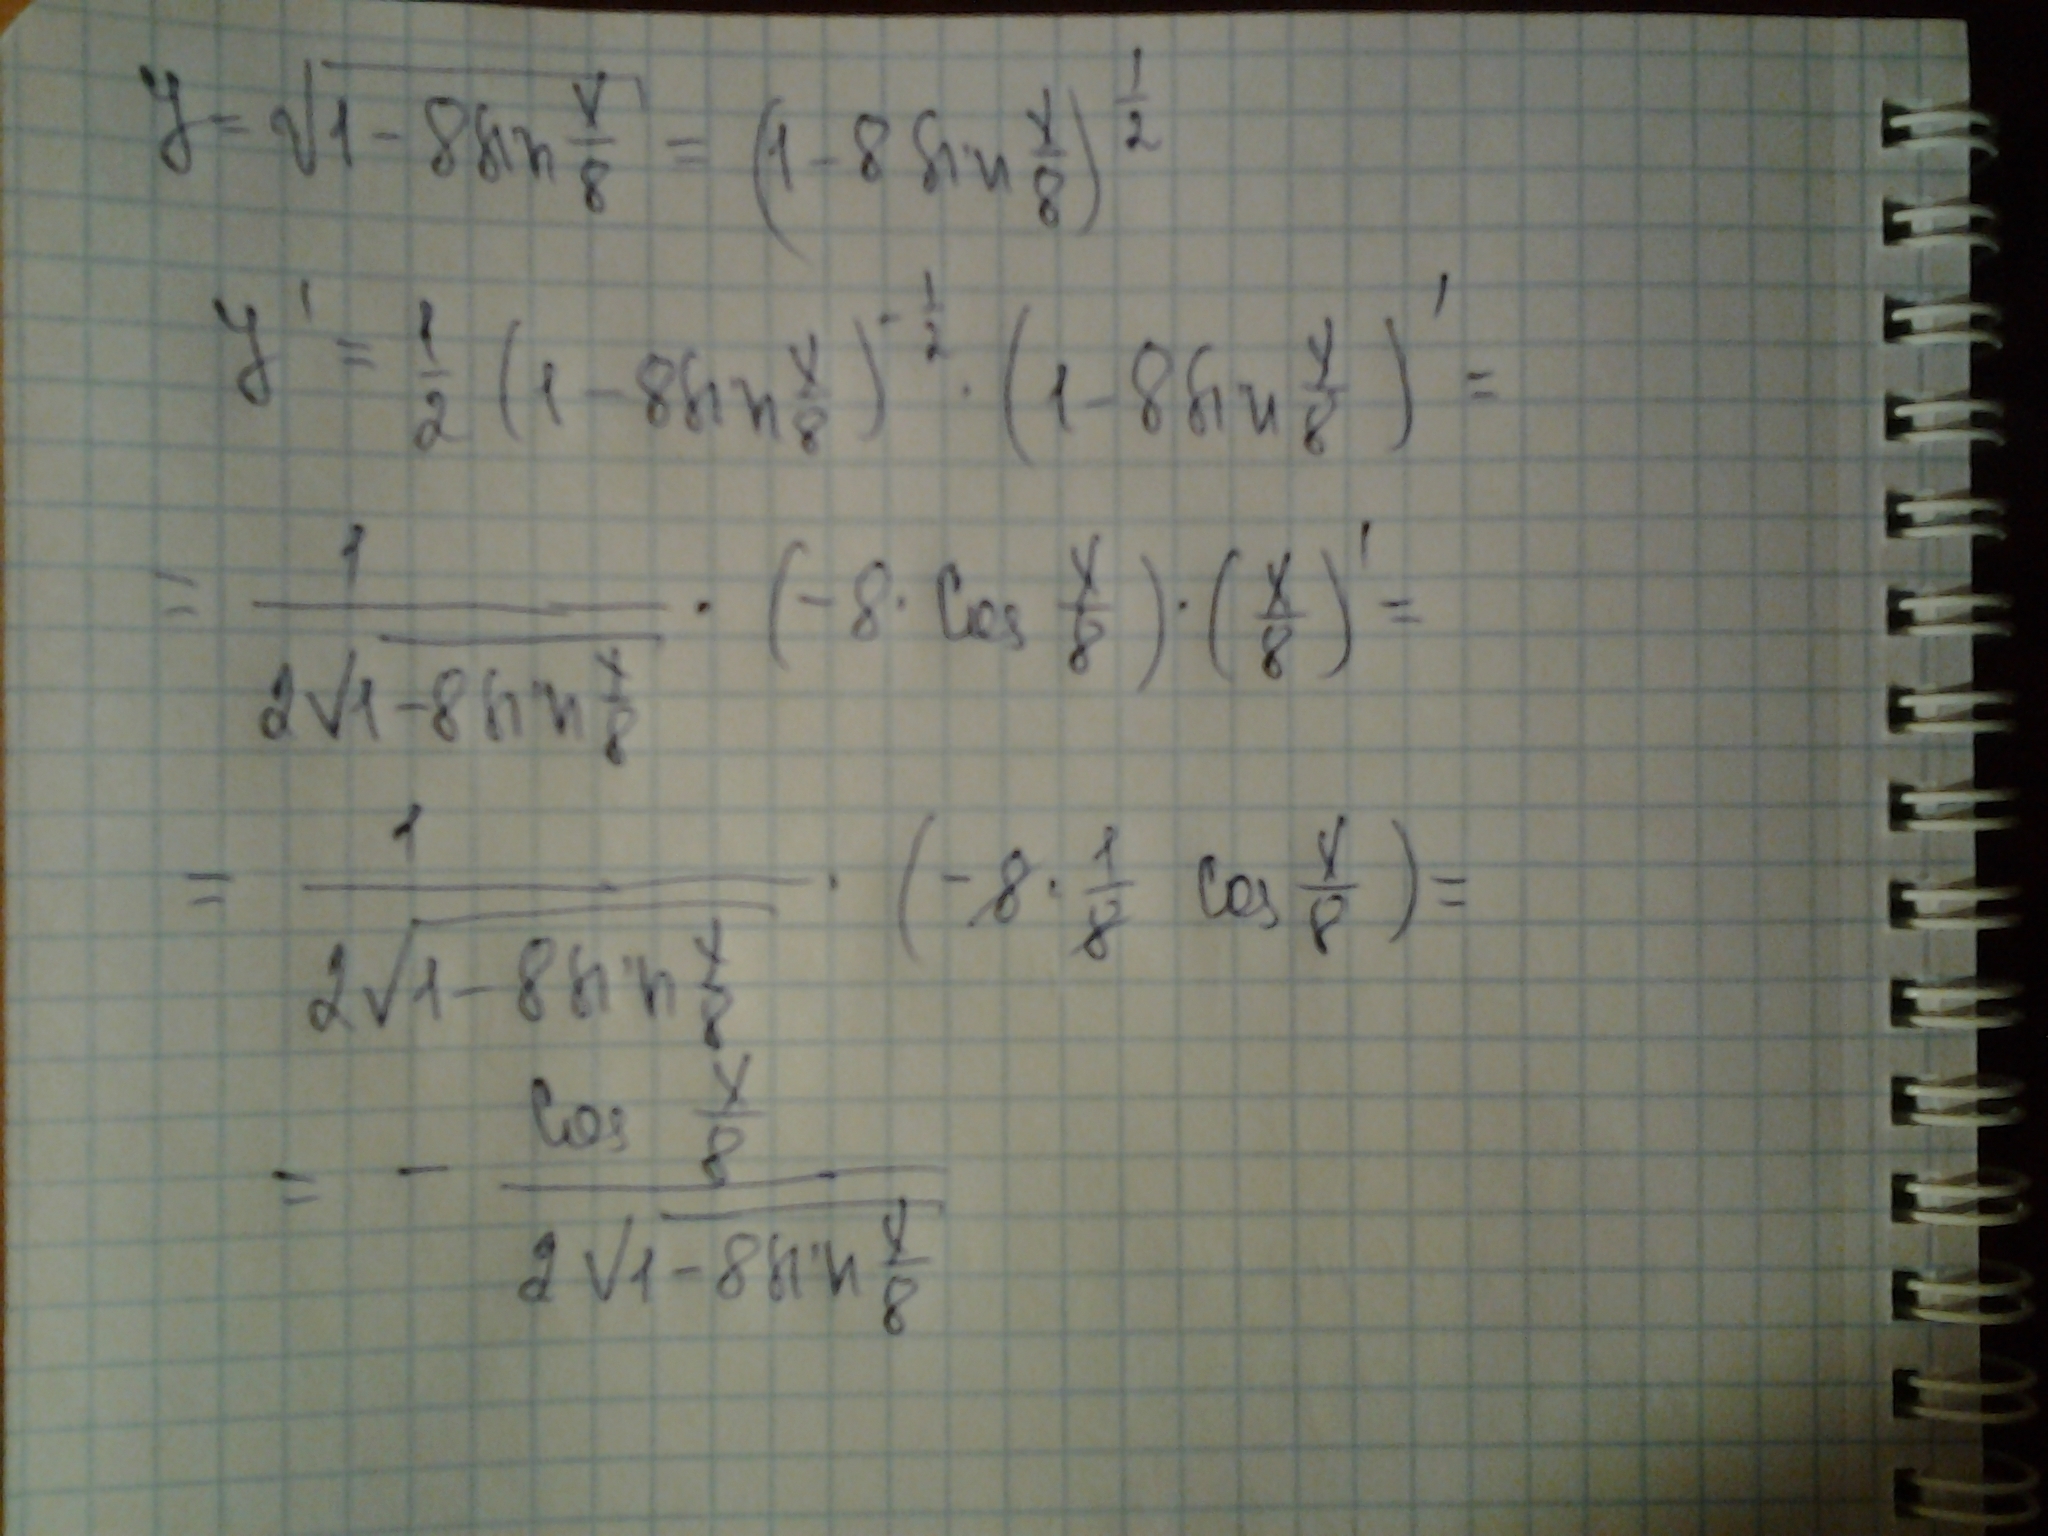 y = √(1 - 8 sin x/8) = (1 - 8 sin x/8)^(1/2)
y' = 1/2 (1 - 8 sin x/8)^(-1/2) · (1 - 8 sin x/8)' =
= 1/(2√(1 - 8 sin x/8)) · (-8 · cos x/8) · (x/8)' =
= 1/(2√(1 - 8 sin x/8)) · (-8 · 1/8 cos x/8) =
= - (cos x/8)/(2√(1 - 8 sin x/8))